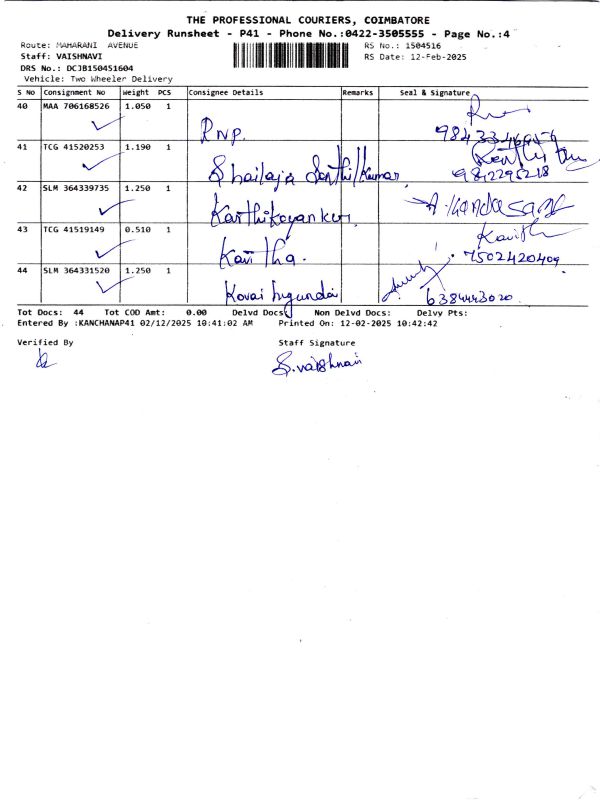 THE PROFESSIONAL COURIERS, COIMBATORE
Delivery Runsheet - P41 - Phone No.:0422-3505555 - Page No.:4
Route: MAHARANI AVENUE RS No.: 1504516
Staff: VAISHNAVI RS Date: 12-Feb-2025
DRS No.: DCJB150451604
Vehicle: Two Wheeler Delivery
S No Consignment No Weight PCS Consignee Details Remarks Seal & Signature
40 MAA 706168526 1.050 1
RNP.
41 TCG 41520253 1.190 1
Shailaja Senthil Kumar 9842295218
42 SLM 364339735 1.250 1
Karthikeyan
43 TCG 41519149 0.510 1 Kavith
Kavitha. 7502420409
44 SLM 364331520 1.250 1
Kovai 6384443020
Tot Docs: 44 Tot COD Amt: 0.00 Delvd Docs: Non Delvd Docs: Delvy Pts:
Entered By :KANCHANAP41 02/12/2025 10:41:02 AM Printed On: 12-02-2025 10:42:42
Verified By Staff Signature
S.vaishnavi